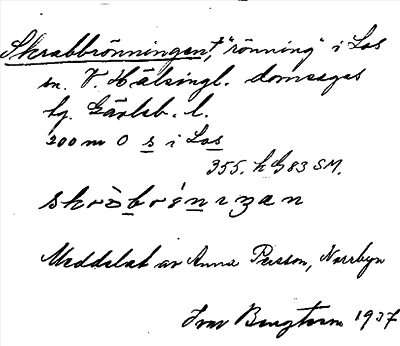 Skrabbrönningen†, "rönning" i Los
sn. V. Hälsingl. domsagas
tg. Gävleb. l.
300 m O s i Los
355. h G 83 SM.
Meddelat av Anna Persson, Norrbyn
Ivar Bengtsson 1937